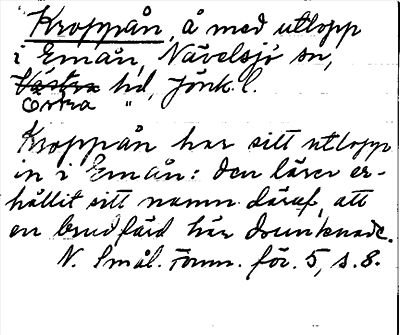 Kroppån, å med utlopp
i Emån, Nävelsjö sn,
Västra hd, Jönk. l.
Östra "
Kroppån har sitt utlopp
in i Emån: den lärer er-
hållit sitt namn däraf, att
en brudfärd här drunknade.
N. Smål. Fornm. för. 5, s. 8.